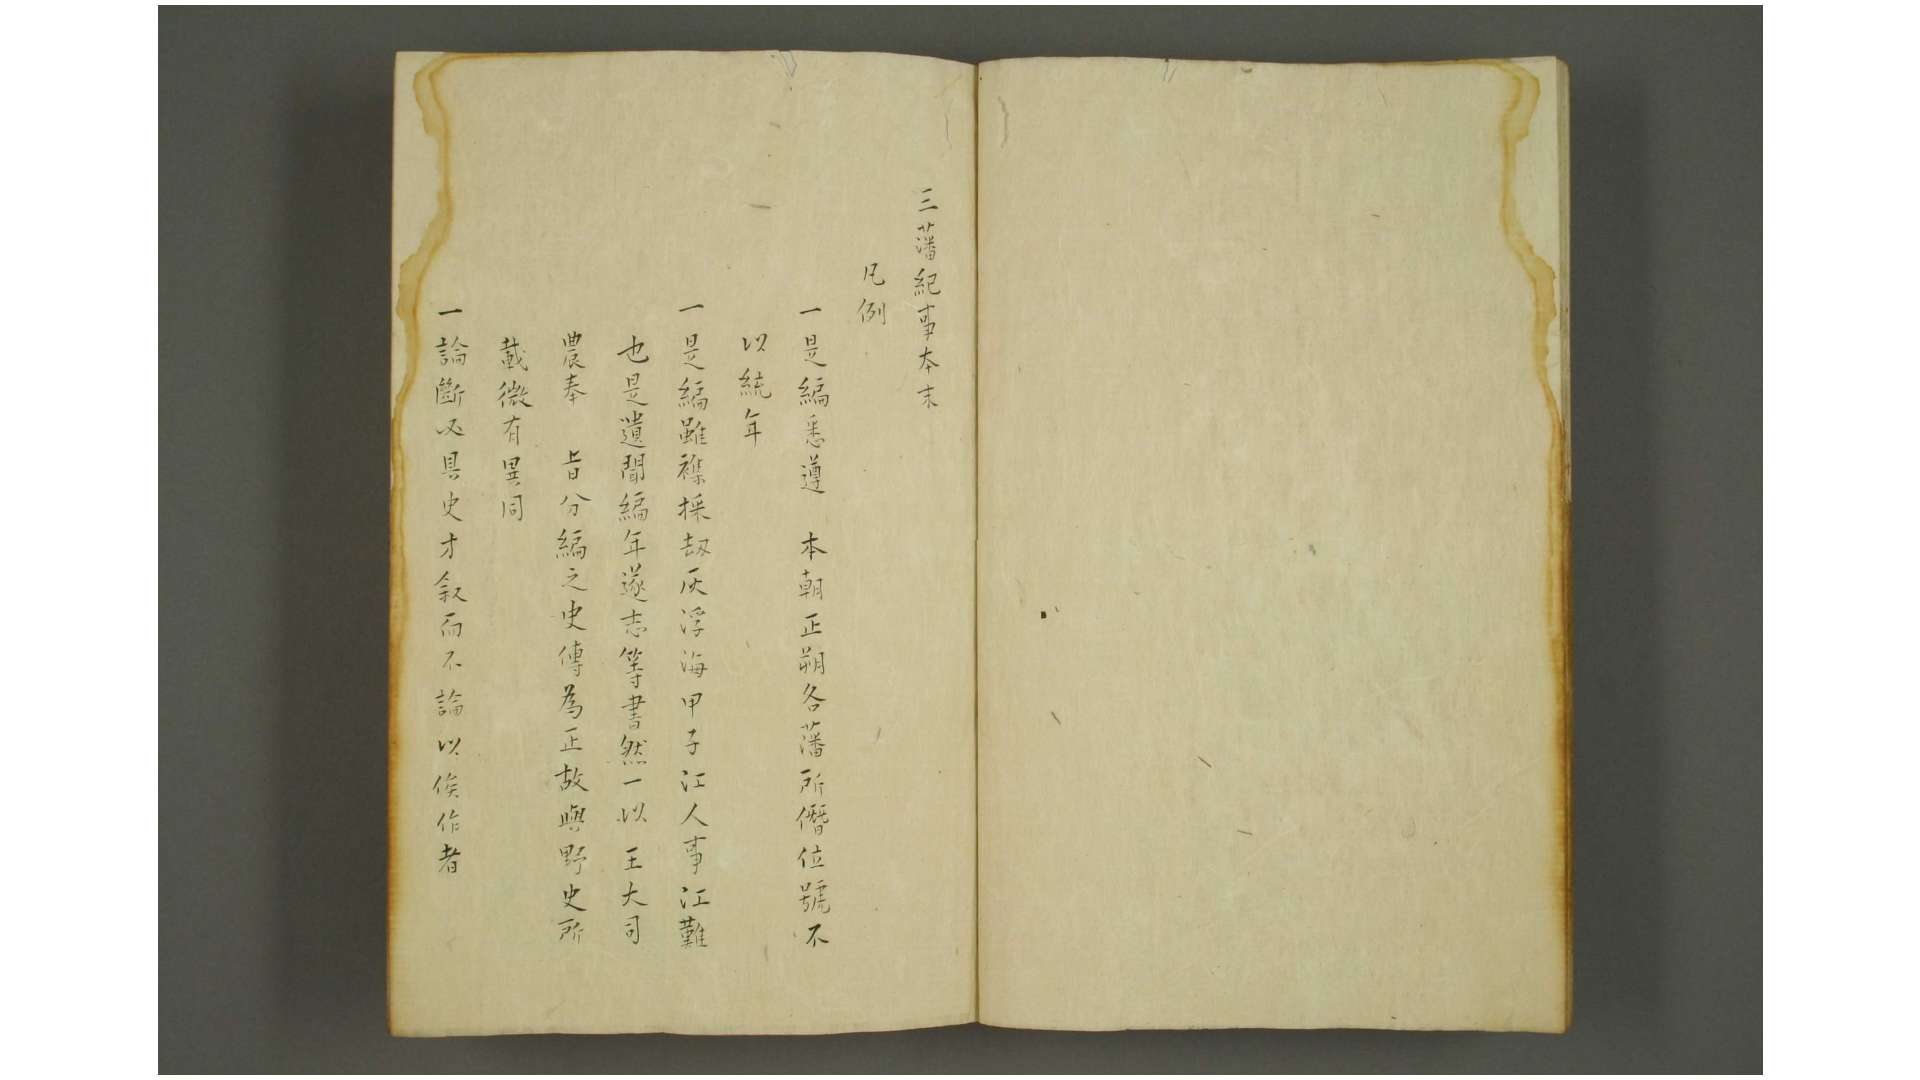 三藩紀事本末
凡例
一是編悉遵　本朝正朔各藩所僭位號不
以統年
一是編雖襍採劫灰浮海甲子江人事江難
也是遺聞編年遂志等書然一以　王大司
農奉　旨分編之史傳為正故與野史所
載微有異同
一論斷必具史才叙而不論以俟作者